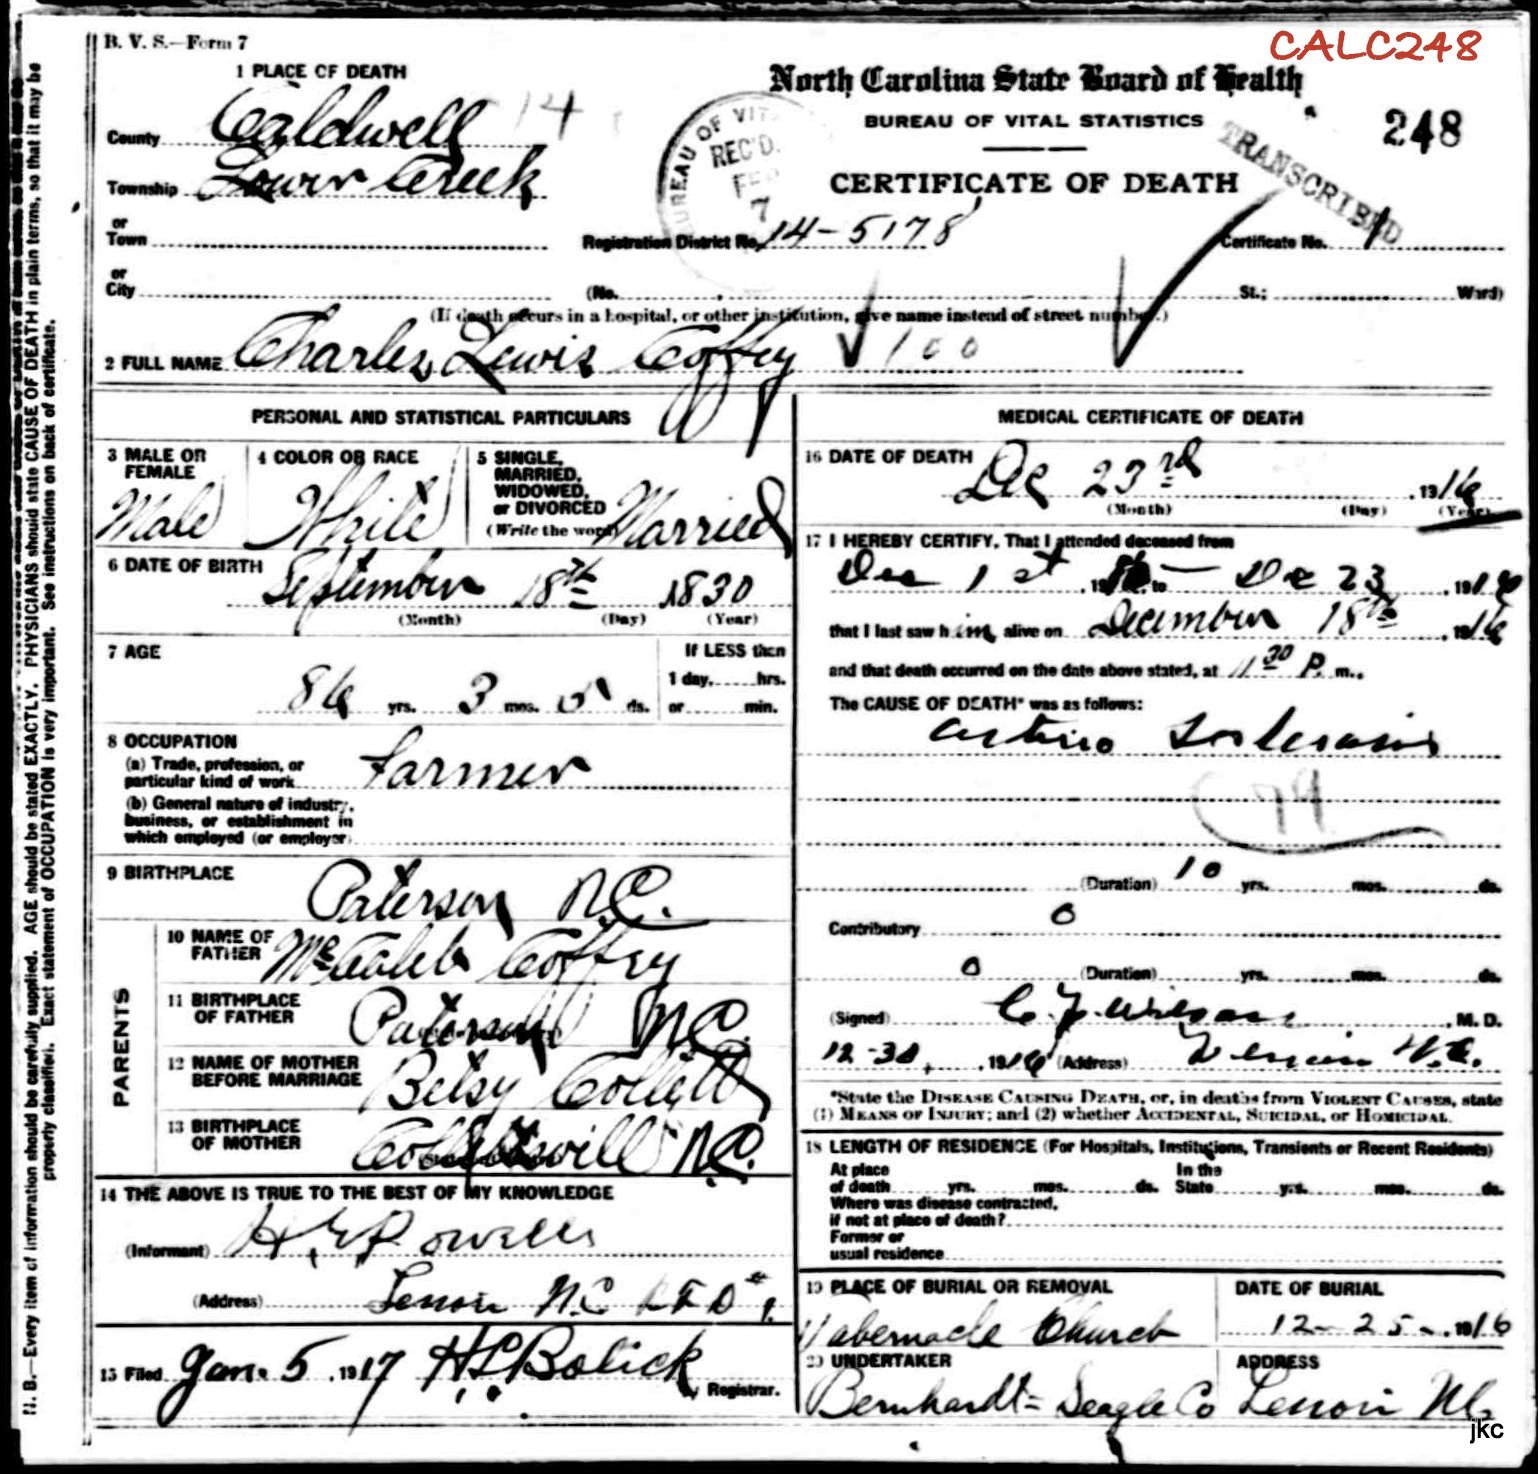 B. V. S.—Form 7
CALC248
1 PLACE OF DEATH
North Carolina State Board of Health
BUREAU OF VITAL STATISTICS
248
TRANSCRIBED
BUREAU OF VIT
REC'D.
7
CERTIFICATE OF DEATH
County Caldwell 14
Township Lower Creek
or
Town
Registration District No. 14-5178
Certificate No. 1
or
City
(No. St.; Ward)
(If death occurs in a hospital, or other institution, give name instead of street number.)
2 FULL NAME Charles Lewis Coffey 100
PERSONAL AND STATISTICAL PARTICULARS
3 MALE OR FEMALE
Male
4 COLOR OR RACE
White
5 SINGLE, MARRIED, WIDOWED, or DIVORCED
(Write the word) Married
6 DATE OF BIRTH September 18th 1830
(Month) (Day) (Year)
7 AGE
86 yrs. 3 mos. 5 ds.
If LESS then
1 day, hrs.
or min.
8 OCCUPATION
(a) Trade, profession, or
particular kind of work Farmer
(b) General nature of industry,
business, or establishment in
which employed (or employer)
9 BIRTHPLACE
Paterson N.C.
PARENTS
10 NAME OF FATHER McCaleb Coffey
11 BIRTHPLACE OF FATHER Paterson N.C.
12 NAME OF MOTHER BEFORE MARRIAGE Betsy Collett
13 BIRTHPLACE OF MOTHER Collettsvill N.C.
14 THE ABOVE IS TRUE TO THE BEST OF MY KNOWLEDGE
(Informant) H. E. Powells
(Address) Lenoir N.C. R F D # 1.
15 Filed Jan. 5, 1917 H.L. Bolick
Registrar.
MEDICAL CERTIFICATE OF DEATH
16 DATE OF DEATH Dec 23rd, 1916
(Month) (Day) (Year)
17 I HEREBY CERTIFY, That I attended deceased from
Dec 1st, 1916 to — Dec 23, 1916
that I last saw him alive on December 18th, 1916
and that death occurred on the date above stated, at 11 30 P. m.,
The CAUSE OF DEATH* was as follows:
(Duration) 10 yrs. mos. ds.
Contributory 0
0 (Duration) yrs. mos. ds.
(Signed) C. J. Wilson, M. D.
12-30, 1916 (Address) Lenoir N.C.
*State the DISEASE CAUSING DEATH, or, in deaths from VIOLENT CAUSES, state
(1) MEANS OF INJURY; and (2) whether ACCIDENTAL, SUICIDAL, or HOMICIDAL.
18 LENGTH OF RESIDENCE (For Hospitals, Institutions, Transients or Recent Residents)
At place of death yrs. mos. ds. In the State yrs. mos. ds.
Where was disease contracted,
if not at place of death?
Former or
usual residence
19 PLACE OF BURIAL OR REMOVAL
Tabernacle Church
DATE OF BURIAL
12-25-, 1916
20 UNDERTAKER
Bernhardt-Seagle Co
ADDRESS
Lenoir NC
jkc
N. B.—Every item of information should be carefully supplied. AGE should be stated EXACTLY. PHYSICIANS should state CAUSE OF DEATH in plain terms, so that it may be
properly classified. Exact statement of OCCUPATION is very important. See instructions on back of certificate.